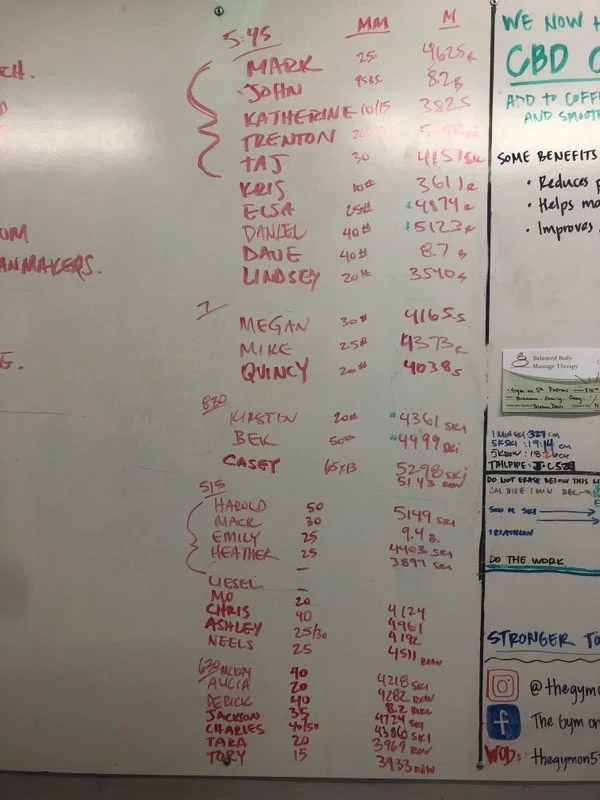 MM M
5:45
MARK 25 4625R
JOHN 95BS 8.2B
KATHERINE 10/15 3825
TRENTON
TAJ 30 4151SKI
KRIS 10# 3611R
ELSA 25# 4974R
DANIEL 40# 5123R
DAVE 40# 8.7 B
LINDSEY 20# 3540S
7
MEGAN 30# 4165S
MIKE 25# 4373R
QUINCY 20# 4038S
830
KIRSTIN 20# 4361 SKI
BEK 50# 4499SKI
CASEY 65x13 5298SKI
5143 ROW
515
HAROLD 50 5149 SKI
MACK 30 9.4 B.
EMILY 25 4403 SKI
HEATHER 25 3897 SKI
LIESEL —
MO 20
CHRIS 40 4124
ASHLEY 25/30 4961
NEELS 25 4192
4511 ROW
630 MCKAY 40
ALICIA 20 4218 SKI
DERICK 40 4282 ROW
JACKSON 35 8.2 BIKE
CHARLES 40/50 4724 SKI
TARA 20 4380 SKI
TORY 15 3969 ROW
3933 ROW
CH.
OM
ANMAKERS.
E.
WE NOW H
CBD C
ADD to COFF
AND SMOOTH
SOME BENEFITS
• Reduces p
• Helps ma
• Improves
Balanced Body
Massage Therapy
1 MIN SKI: 327 cm
5K SKI: 19:14 CM
5K ROW: 18:26 CM
TAILPIPE:
DO NOT ERASE BELOW THIS LI
CAL BIKE 1 MIN BEK
500 M SKI
TRIATHLON
DO THE WORK
STRONGER TO
@thegymon
The Gym on
WODs: thegymon5